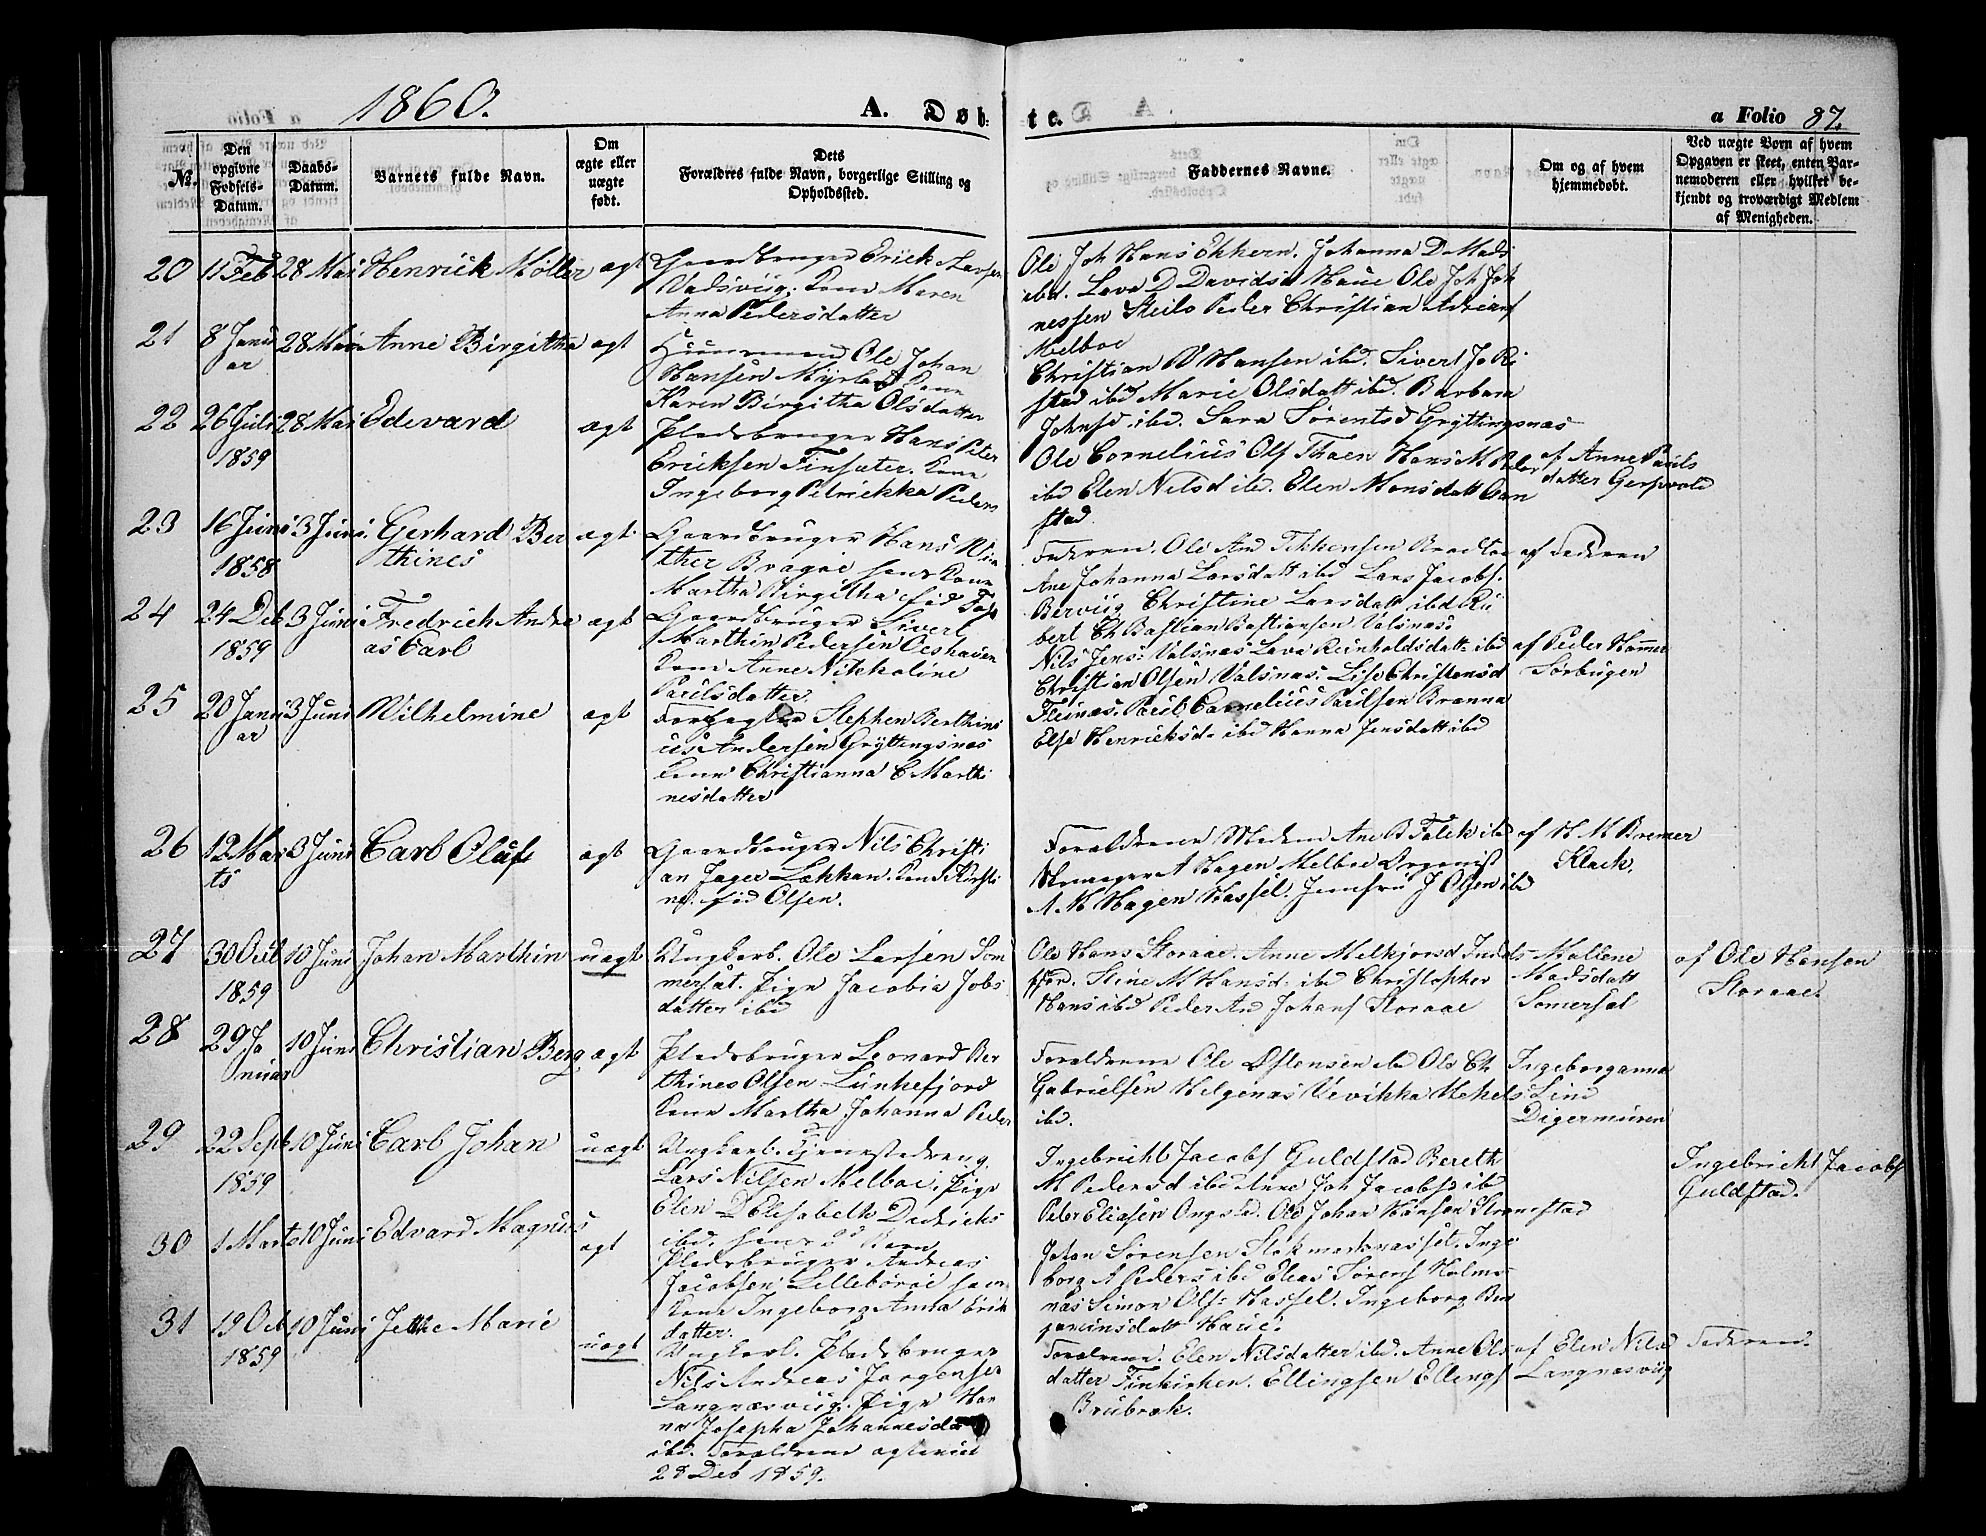 1860.
A. Døb-
te.
a Folio 87.
№.
Den opgivne Fødsels-Datum.
Daabs-Datum.
Barnets fulde Navn.
Om ægte eller uægte født.
Dets
Forældres fulde Navn, borgerlige Stilling og
Opholdssted.
Faddernes Navne.
Om og af hvem
hjemmedøbt.
Ved uægte Børn af hvem
Opgaven er skeet, enten Bar-
nemoderen eller hvilket be-
kjendt og troværdigt Medlem
af Menigheden.
20 11 Feb 28 Mai Henrick Møller ægt
Gaardbruger Erick Larsen
Vadsviig. Kone Maren
Anna Pedersdatter
Ole Joh Hans Ekkern. Johanna D Mads
ibd. Lava D Davidsd Haue Ole Joh Joh
nessen Steilo Peder Christian Adrians
Melboe
21 8 Janu
ar
28 Mai Anne Birgitha ægt
Huusmand Ole Johan
Hansen Myrland Kone
Karen Birgitha Olsdatter
Christian Hansen ibd. Sivert Jo Ri
stad ibd Marie Olsdatt ibd. Barbara
Johnsd. ibd. Sara Sørentsd Gryttingsnæs
22 26 Juli
1859
28 Mai Edevard ægt
Pladsbruger Hans Peter
Ericksen Finsæter. Kone
Ingeborg Petrickka Peders
Ole Cornelius Ols Thoen Hans M Peder
ibd Elen Nilsd ibd. Elen Monsdatt Gan
stad.
af Anne Pauls
datter Gerfsvold
23 16 Juni
1858
3 Juni. Gerhard Ber
thines
ægt
Gaardbruger Hans Win
ther Bragøe hans Kone
Martha Birgitha fød
Faderen. Ole And
Ane Johanna Larsdatt ibd Lars Jacobs.
Berviig Christine Larsdatt ibd Ru
bert Ch Bastian Bastiansen Valsnæs:
af Faderen
24 24 Deb
1859
3 Juni Fredrich Andre
as Carl
ægt
Gaardbruger Sivert
Marthin Pedersen Oeshavn
Kone Anne Nikkoline
Paulsdatter.
Nils Jens: Valsnæs Lava Reinholdsdatt ibd
Christian Olsen Valsnæs: Lise Christensd
af Peder Hammer
Sørbugen
25 20 Janu
ar
3 Juni Wilhelmine ægt
Forpagter Stephen Berthini
us Andersen Gryttingsnæs
Kone Christianna C Marthi
nesdatter
Fleinæs. Paul Cornelius Paulsen Brænna
Else Henricksd- ibd Hanna Jensdatt ibd
26 12 Mar
ts
3 Juni Carl Oluf ægt
Gaardbruger Nils Christi
an Jager Løkkan. Kone Kirsti
ne. fød Olsen.
Forældrene Madam Ane B Falck ibd
A Hagen Melboe Organist
A M Hagen Hassel. Jomfru J Olsen ibd
af H. M Bremer
Klack.
27 30 Oct
1859
10 Juni Johan Marthin uægt
Ungkarl. Ole Larsen Som
mersæt. Pige Jacobia Jobs
datter ibd
Ole Hans Storaae. Anne Melkjorsd Indls
fjor. Stine M Hansd. ibd Christopher
Hans ibd Peder And Johans Storaae
Mallene
Madsdatt
Somersæt
af Ole Hansen
Storaae.
28 29 Ja
nuar
10 Juni Christian Berg ægt
Pladsbruger Leonard Ber
thines Olsen Lunkefjord
Kone Martha Johanna Peder
Forældrene Ole Østensen ibd Ole Ch
Gabrielsen Helgenæs Mekels
ibd.
Ingeboranna
Lind
Digermuren
29 22 Sept
1859
10 Juni Carl Johan uægt
Ungkarl. Tjenestedreng.
Lars Nilsen Melboe, Pige
Elen D Elisabeth Didrichs
ibd. hans 2d Barn
Ingebricht Jacobs Guldstad Bereth
M Pedersd ibd Anne Joh Jacobsd ibd
Peder Eliasen Ongstad. Ole Johan Hansen Strømstad
Ingebricht Jacobs
Guldstad.
30 1 Marts 10 Juni Edvard Magnus ægt
Pladsbruger Andreas
Jacobsen Lillebørøe hans
Kone Ingeborg Anna Erik
datter.
Johan Sørensen Stokmarknæsset. Inge
borg A Peders ibd Elias Sørens Holme
næs Simon Ols: Hassel. Ingeborg Ben
jaminsdatt Haue.
31 19 Oct
1859
10 Juni Jette Marie uægt
Ungkarl. Pladsbruger
Nils Andreas Jørgensen
Langnæsviig. Pige Han
na Josepha Johannesda
ibd. Forældrene ægteviet
28 Deb 1859.
Forældrene. Elen Nilsdatter ibd. Anne Ols
datter Finkirken. Ellingsen Ellings
Brubræk.
af Elen Nilsd
Langnæsviig
Faderen.